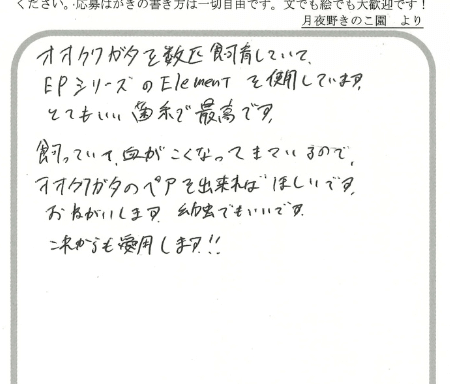 ください。応募はがきの書き方は一切自由です。文でも絵でも大歓迎です！
月夜野きのこ園　より
オオクワガタを数匹飼育していて、
EPシリーズのElementを使用しています。
とてもいい菌糸で最高です。
飼っていて、血がこくなってきているので、
オオクワガタのペアを出来ればほしいです。
おねがいします。幼虫でもいいです。
これからも愛用します!!